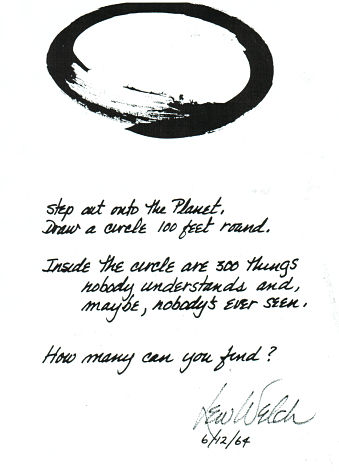 Step out onto the Planet.
Draw a circle 100 feet round.
Inside the circle are 300 things
nobody understands and,
maybe, nobody's ever seen.
How many can you find?
Lew Welch
6/12/64